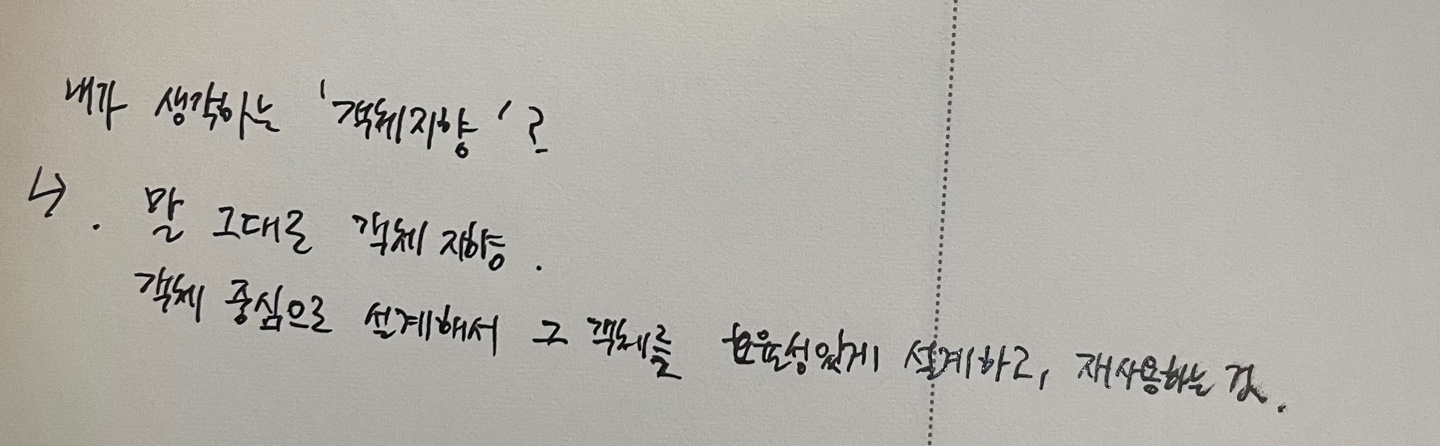 내가 생각하는 '객체지향'?
↳. 말 그대로 객체 지향.
객체 중심으로 설계해서 그 객체를 효율성있게 설계하고, 재사용하는 것.